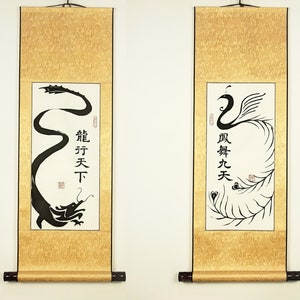 龍行天下
鳳舞九天